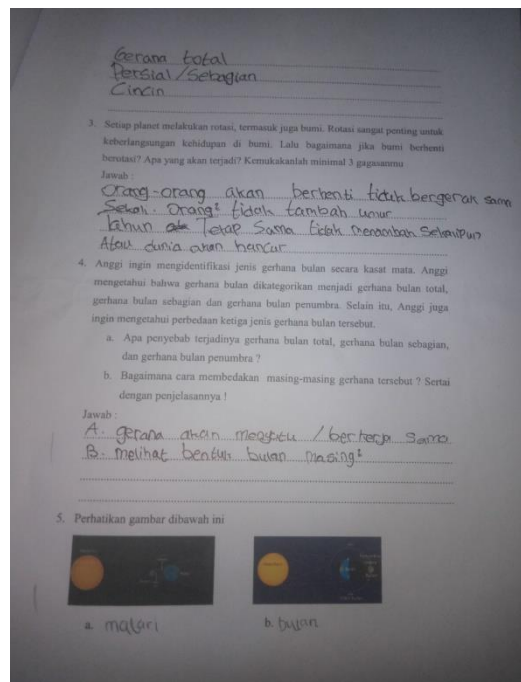 Gerana total
Persial/Sebagian
Cincin
3. Setiap planet melakukan rotasi, termasuk juga bumi. Rotasi sangat penting untuk
keberlangsungan kehidupan di bumi. Lalu bagaimana jika bumi berhenti
berotasi? Apa yang akan terjadi? Kemukakanlah minimal 3 gagasanmu
Jawab :
Orang-orang akan berhenti tidak bergerak sama
Sekali. Orang² tidak tambah umur
tahun Tetap Sama tidak menambah Sekalipun
Atau dunia akan hancur
4. Anggi ingin mengidentifikasi jenis gerhana bulan secara kasat mata. Anggi
mengetahui bahwa gerhana bulan dikategorikan menjadi gerhana bulan total,
gerhana bulan sebagian dan gerhana bulan penumbra. Selain itu, Anggi juga
ingin mengetahui perbedaan ketiga jenis gerhana bulan tersebut.
a. Apa penyebab terjadinya gerhana bulan total, gerhana bulan sebagian,
dan gerhana bulan penumbra ?
b. Bagaimana cara membedakan masing-masing gerhana tersebut ? Sertai
dengan penjelasannya !
Jawab :
A. gerana akan / berkerja Sama
B. melihat bentuk bulan masing²
5. Perhatikan gambar dibawah ini
a. matari
b. bulan